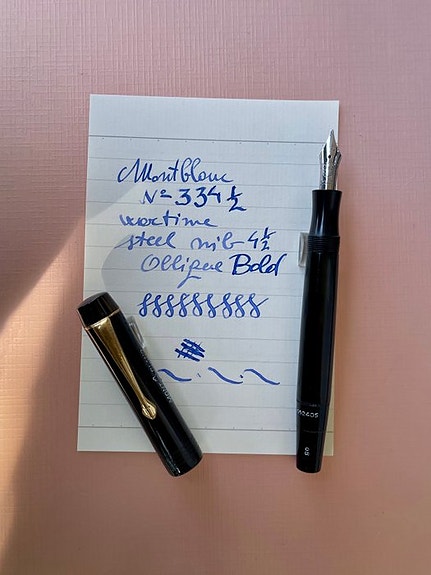 Montblanc
Nº 334 ½
wartime
steel nib 4½
Oblique Bold